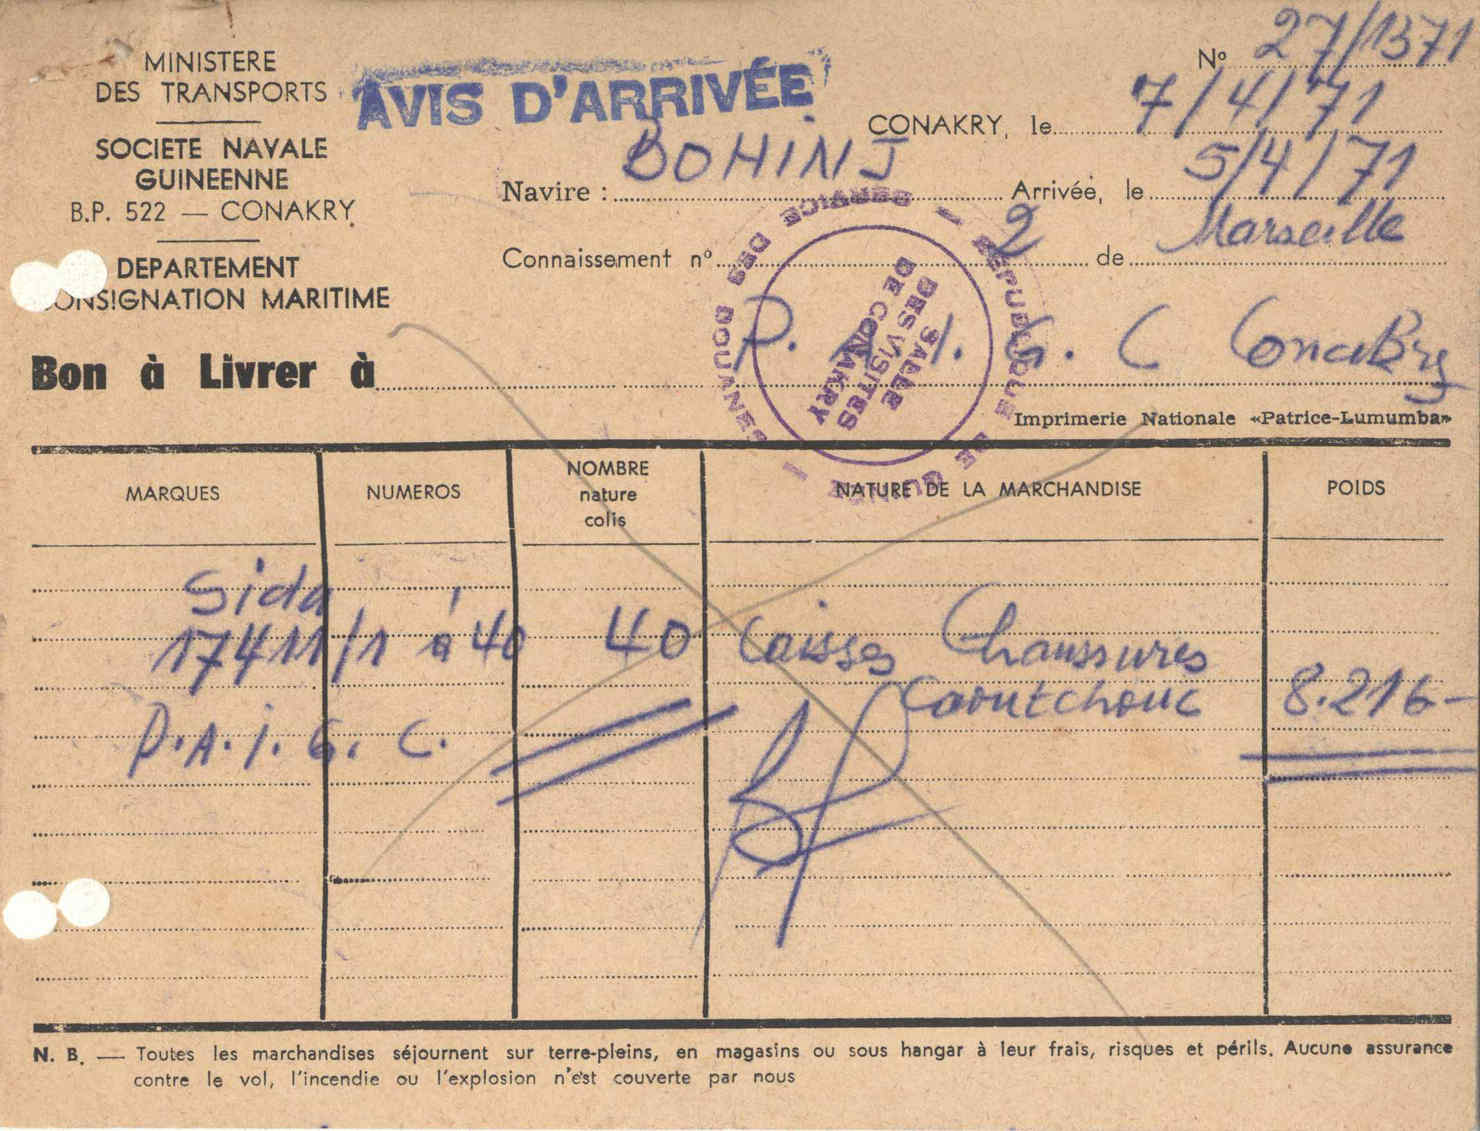 MINISTERE
DES TRANSPORTS
SOCIETE NAVALE
GUINEENNE
B.P. 522 — CONAKRY
DEPARTEMENT
CONSIGNATION MARITIME
AVIS D'ARRIVÉE
N° 27/1371
CONAKRY, le 7/4/71
Navire : BOHINJ Arrivée, le 5/4/71
Connaissement n° 2 de Marseille
Bon à Livrer à P. A. I. G. C Conakry
REPUBLIQUE DE GUINEE
SERVICE DES DOUANES
SALLE
DES VISITES
DE CONAKRY
Imprimerie Nationale «Patrice-Lumumba»
MARQUES NUMEROS NOMBRE nature colis NATURE DE LA MARCHANDISE POIDS
Sida
17411/1 à 40 40 Caisses Chaussures
Caoutchouc 8.216-
P.A.I.G.C.
N. B. — Toutes les marchandises séjournent sur terre-pleins, en magasins ou sous hangar à leur frais, risques et périls. Aucune assurance
contre le vol, l'incendie ou l'explosion n'est couverte par nous